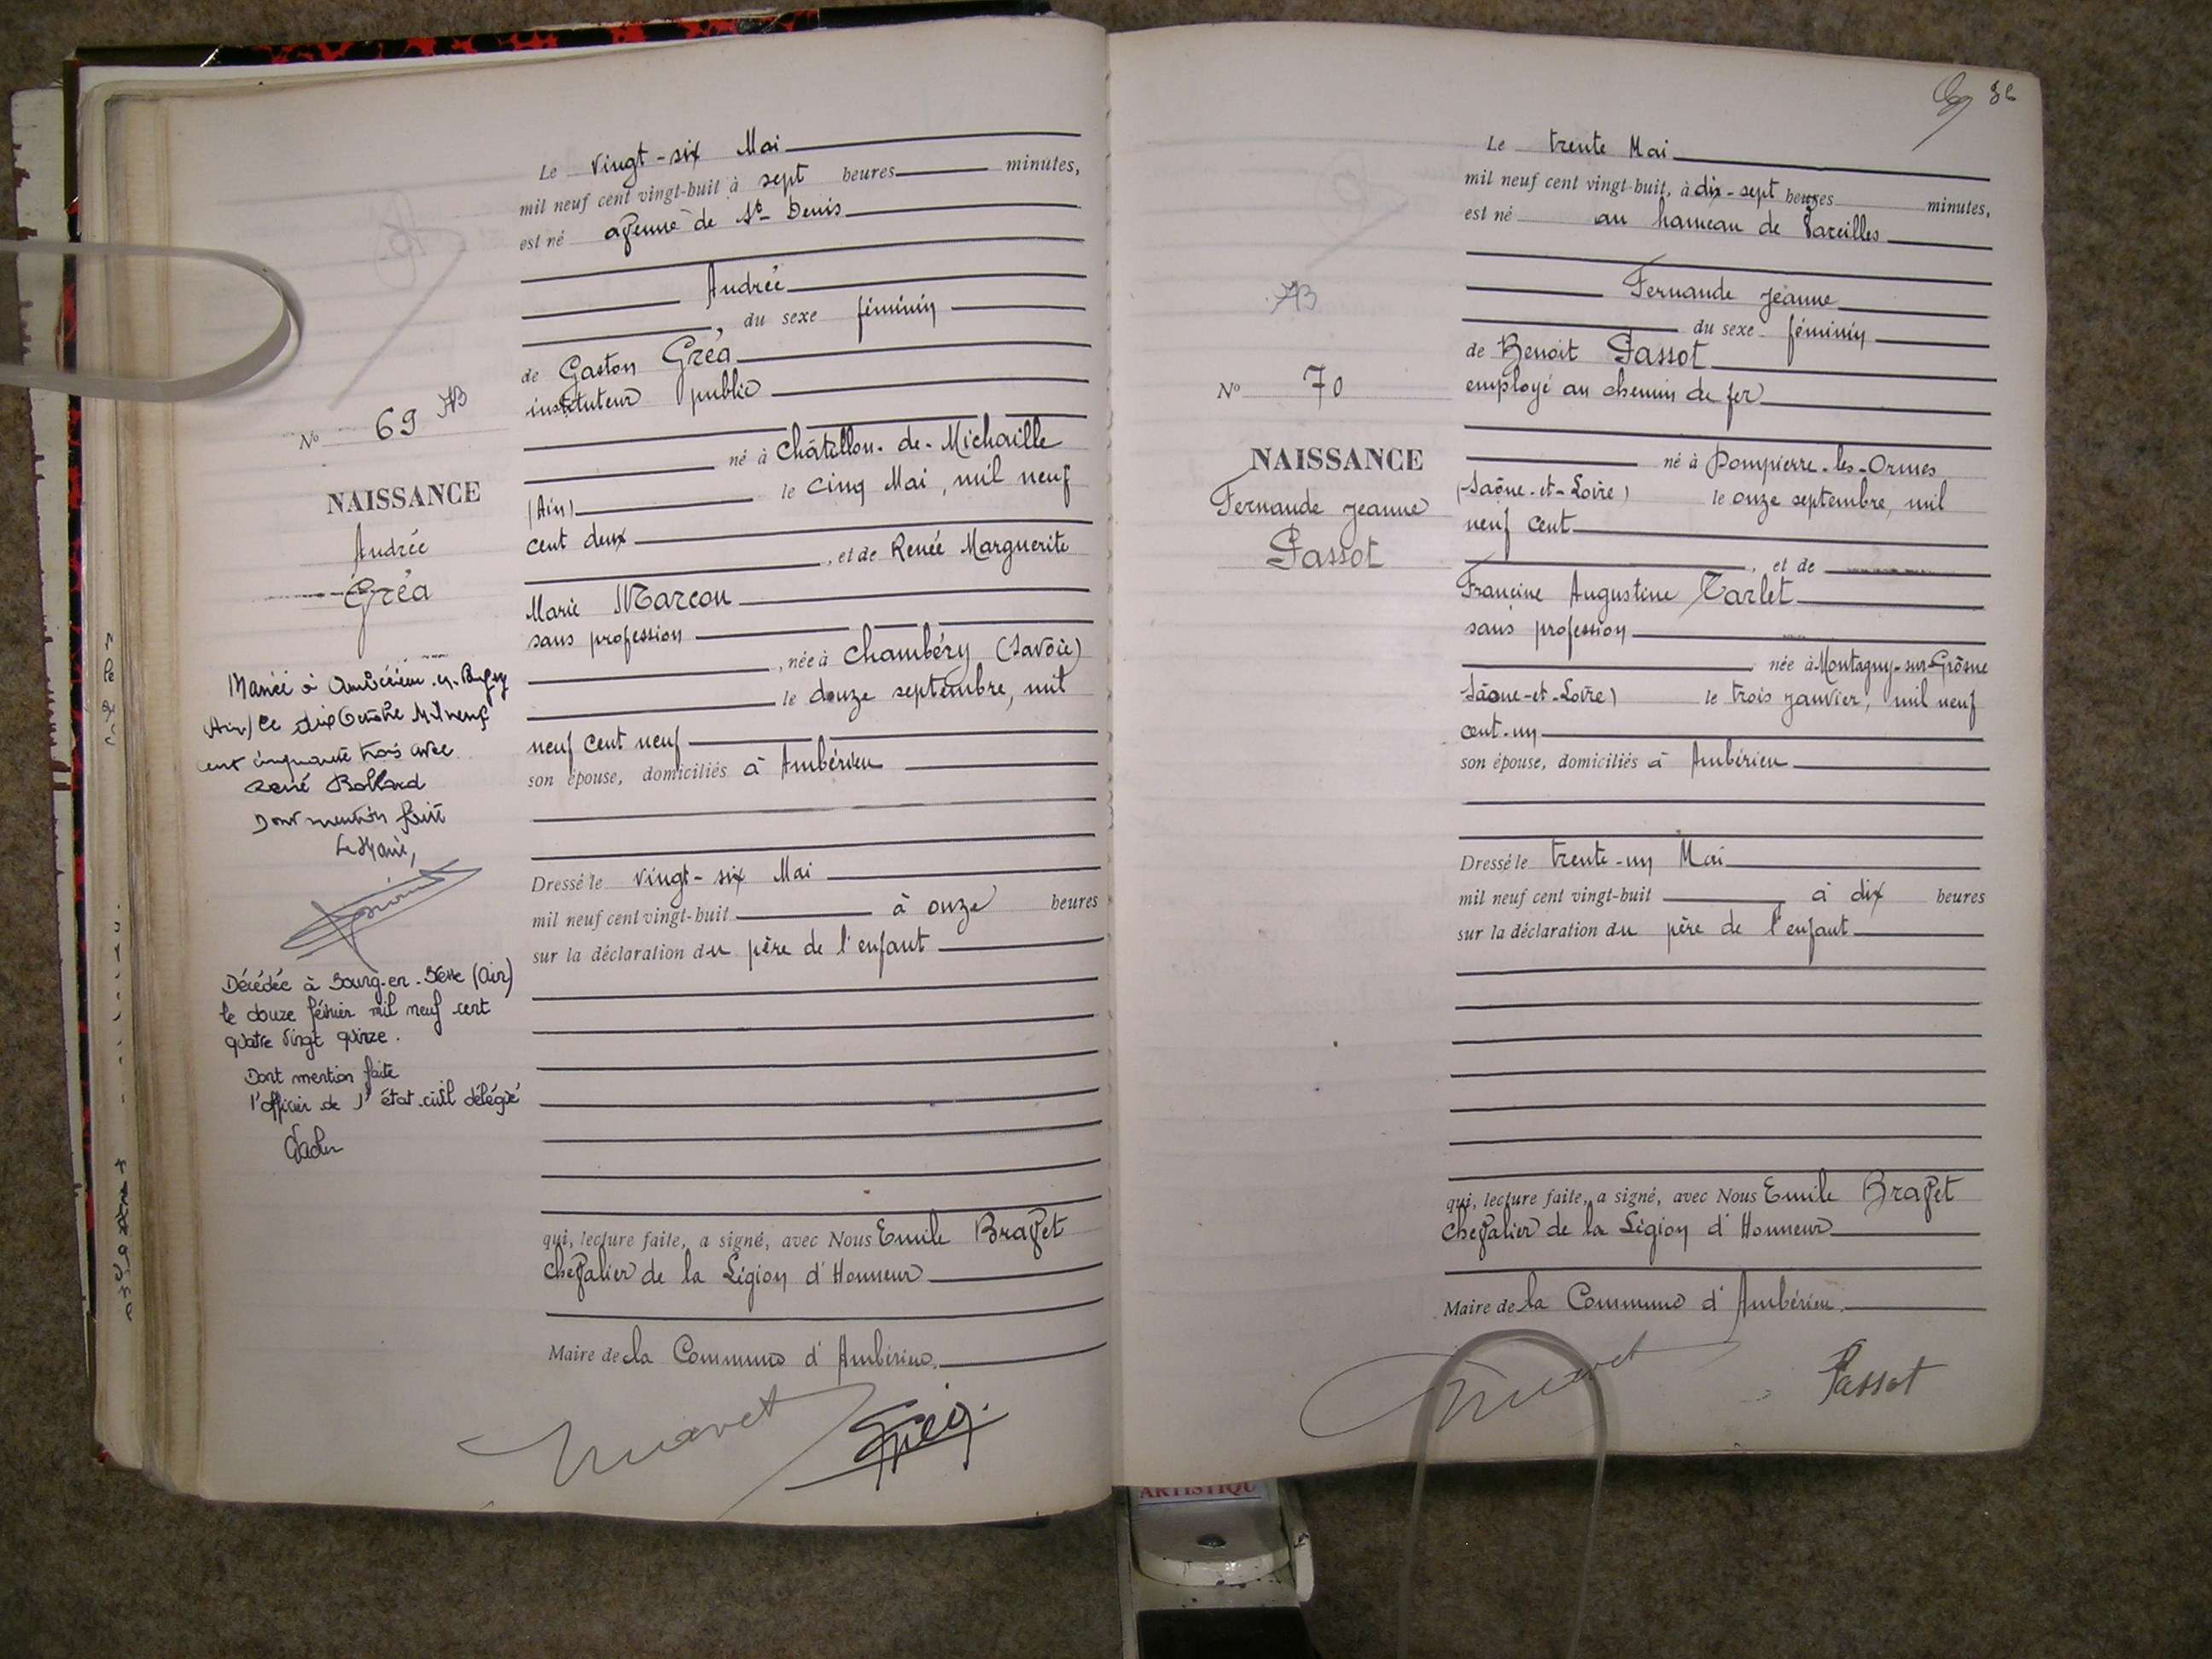 Le vingt-six Mai
mil neuf cent vingt-huit à sept heures minutes,
est né avenue de St Denis
Andrée
, du sexe féminin
de Gaston Gréa
instituteur public
né à Châtillon-de-Michaille
(Ain) le cinq Mai, mil neuf
cent deux
, et de Renée Marguerite
Marie Marcon
sans profession
, née à Chambéry (Savoie)
le douze septembre, mil
neuf cent neuf
son épouse, domiciliés à Ambérieu
Dressé le vingt-six Mai
mil neuf cent vingt-huit à onze heures
sur la déclaration du père de l'enfant
qui, lecture faite, a signé, avec Nous Emile Bravet
Chevalier de la Légion d'Honneur
Maire de la Commune d'Ambérieu.
No 69 AB
NAISSANCE
Andrée
Gréa
Mariée à Ambérieu-en-Bugey
(Ain) le dix Octobre Mil neuf
cent cinquante trois avec
René Bollard
Dont mention faite
Le Maire,
Décédée à Bourg-en-Bresse (Ain)
le douze février mil neuf cent
quatre vingt quinze.
Dont mention faite
l'officier de l'état-civil délégué
Le trente Mai
mil neuf cent vingt-huit, à dix-sept heures minutes,
est né au hameau de Vareilles
Fernande Jeanne
du sexe féminin
de Benoit Passot
employé au chemin de fer
né à Dompierre-les-Ormes
(Saône-et-Loire) le onze septembre, mil
neuf cent
, et de
Francine Augustine Tarlet
sans profession
née à Montagny-sur-Grôsne
Saône-et-Loire) le trois janvier, mil neuf
cent-un
son épouse, domiciliés à Ambérieu
Dressé le trente-un Mai
mil neuf cent vingt-huit à dix heures
sur la déclaration du père de l'enfant
qui, lecture faite, a signé, avec Nous Emile Bravet
Chevalier de la Légion d'Honneur
Maire de la Commune d'Ambérieu.
Passot
AB
No 70
NAISSANCE
Fernande Jeanne
Passot
ARTISTIQU